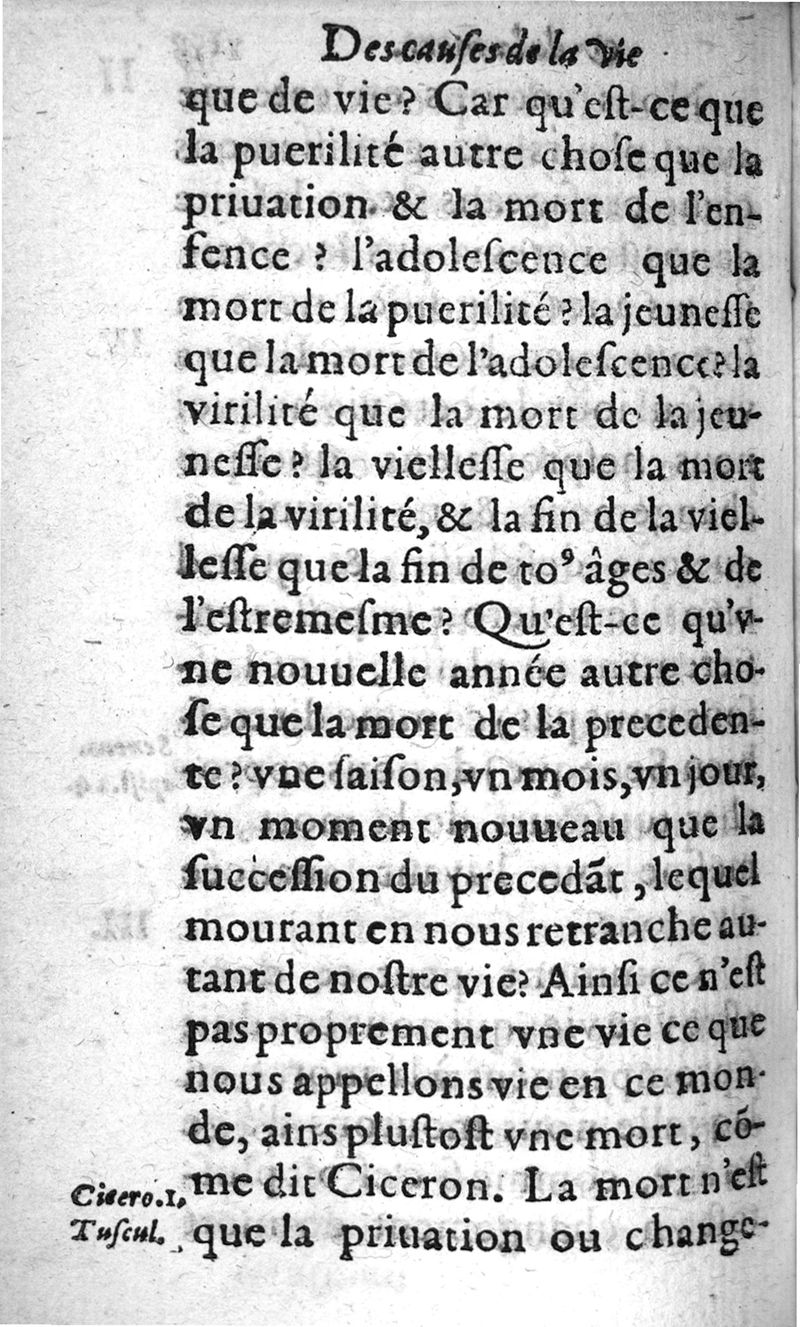 Des cauſes de la vie
que de vie? Car qu'eſt-ce que
la puerilité autre choſe que la
priuation & la mort de l'en-
fence ? l'adoleſcence que la
mort de la puerilité ? la jeuneſſe
que la mort de l'adoleſcence? la
virilité que la mort de la jeu-
neſſe? la vielleſſe que la mort
de la virilité, & la fin de la viel-
leſſe que la fin de toꝰ âges & de
l'eſtremeſme? Qu'eſt-ce qu'v-
ne nouuelle année autre cho-
ſe que la mort de la preceden-
te? vne ſaiſon, vn mois, vn jour,
vn moment nouueau que la
ſucceſſion du precedãt, lequel
mourant en nous retranche au-
tant de noſtre vie? Ainſi ce n'eſt
pas proprement vne vie ce que
nous appellons vie en ce mon-
de, ains pluſtoſt vne mort, cõ-
Cicero. 1. me dit Ciceron. La mort n'eſt
Tuſcul. que la priuation ou change-